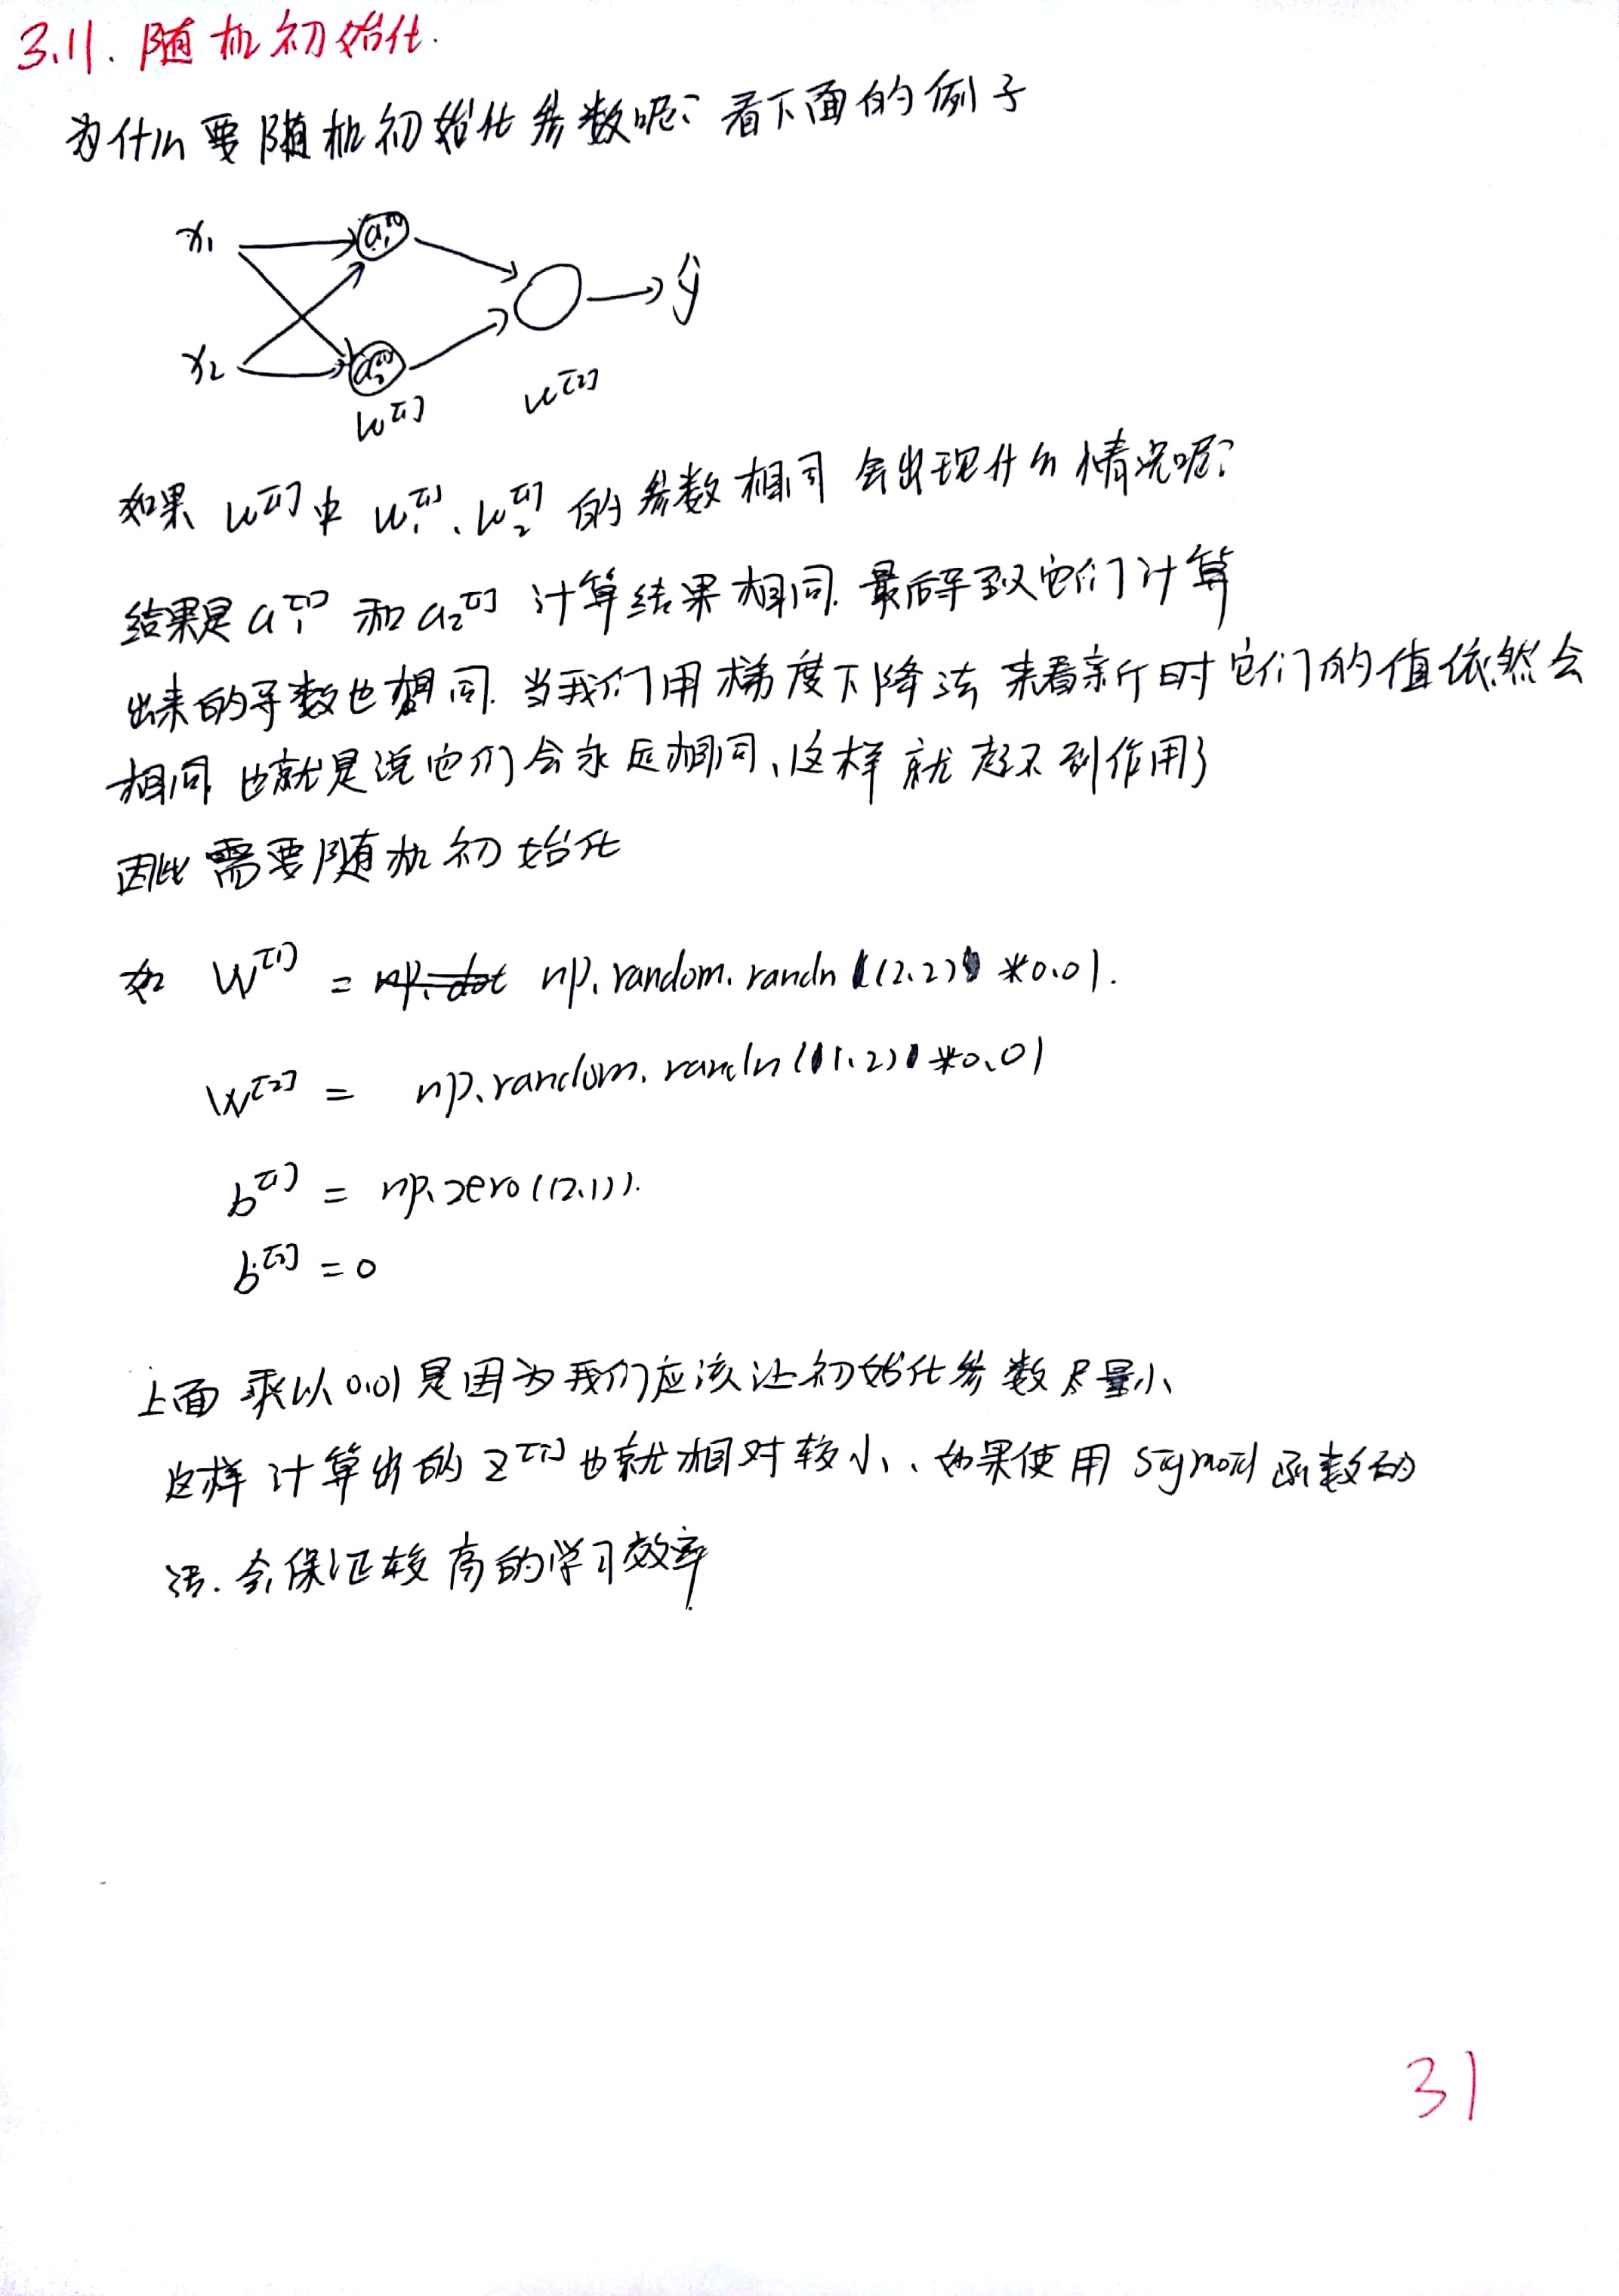 3.11. 随机初始化.
为什么要随机初始化参数呢？看下面的例子
x₁ a₁^[1]
ŷ
x₂ a₂^[1]
w^[1] w^[2]
如果 w^[1]中 w₁^[1]、w₂^[1] 的参数相同 会出现什么情况呢？
结果是 a₁^[1] 和 a₂^[1] 计算结果相同. 最后导致它们计算
出来的导数也相同. 当我们用梯度下降法 来看新时它们的值依然会
相同 也就是说它们会永远相同、这样就起不到作用了
因此需要随机初始化
如 W^[1] = np.dot np.random.randn((2.2)) *0.01.
W^[2] = np.random.randn((1.2)) *0.01
b^[1] = np.zero((2.1)).
b^[2] = 0
上面乘以0.01是因为我们应该让初始化参数尽量小、
这样计算出的 z^[1] 也就相对较小、如果使用 sigmoid 函数的
话. 会保证较高的学习效率
31